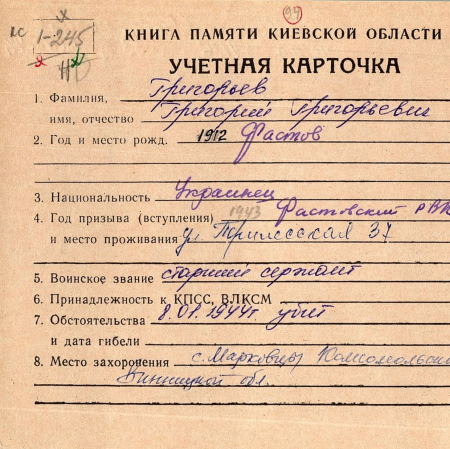 94
1-245
КНИГА ПАМЯТИ КИЕВСКОЙ ОБЛАСТИ
УЧЕТНАЯ КАРТОЧКА
1. Фамилия, Григорьев
имя, отчество Григорий Григорьевич
2. Год и место рожд. 1912 Фастов
3. Национальность Украинец
4. Год призыва (вступления) 1943 Фастовский РВК
и место проживания ул 37
5. Воинское звание старший сержант
6. Принадлежность к КПСС, ВЛКСМ
7. Обстоятельства 8.01.1944г. убит
и дата гибели
8. Место захоронения с. Марковцы Комсомольско
Винницкой обл.